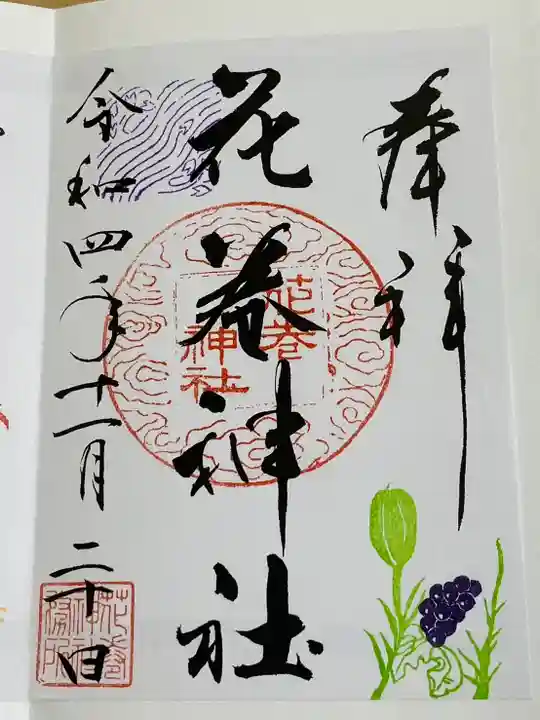 奉拝
花巻神社
花巻
神社
令和四年十一月二十日